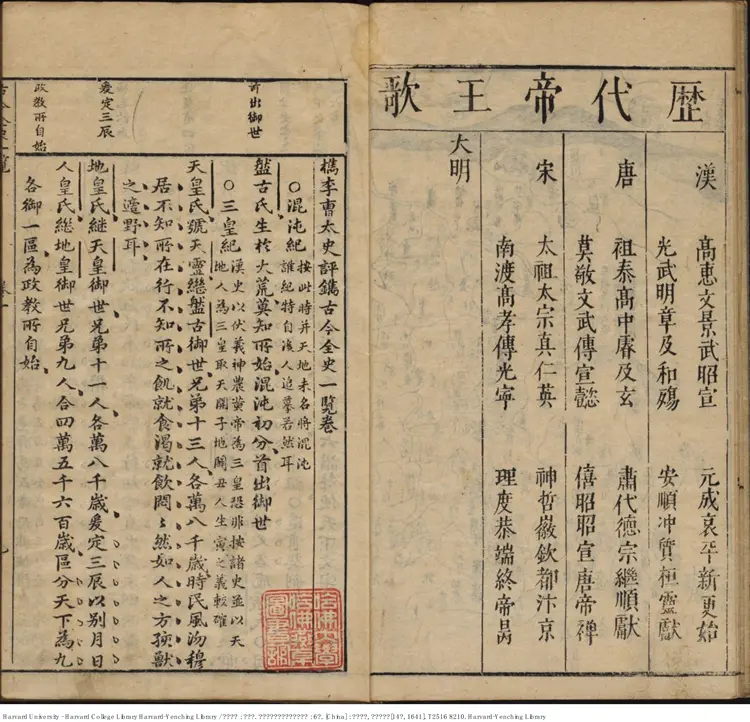 歷代帝王歌
漢
高惠文景武昭宣
元成哀平新更始
光武明章及和殤
安順冲質桓靈獻
唐
祖泰高中睿及玄
肅代德宗繼順獻
莫敬文武傳宣懿
僖昭昭宣唐帝禪
宋
太祖太宗真仁英
神哲徽欽都汴京
南渡高孝傳光寧
理度恭端終帝昺
大明
首出御世
爰定三辰
政教所自始
檇李曹太史評鐫古今全史一覽卷
○混沌紀
按此時并天地未名將混沌
誰紀特自後人追摹若然耳
盤古氏生於大荒莫知所始混沌初分首出御世
○三皇紀
漢史以伏羲神農黃帝為三皇恐非按諸史並以天
地人為三皇取天開于子地闢丑人生寅之義較確
天皇氏號天靈繼盤古御世兄弟十三人各萬八千歲時民風沕穆
居不知所在行不知所之飢就食渴就飲悶〻然如人之方孩獸
之適野耳
地皇氏繼天皇御世兄弟十一人各萬八千歲爰定三辰以別月日
人皇氏繼地皇御世兄弟九人合四萬五千六百歲區分天下為九
各御一區為政教所自始
哈佛大學
哈佛燕京
圖書館
Harvard University - Harvard College Library Harvard-Yenching Library / ???? : ???. ????????????? : 6?. [China] : ????, ?????[14?, 1641]. T2516 8210. Harvard-Yenching Library